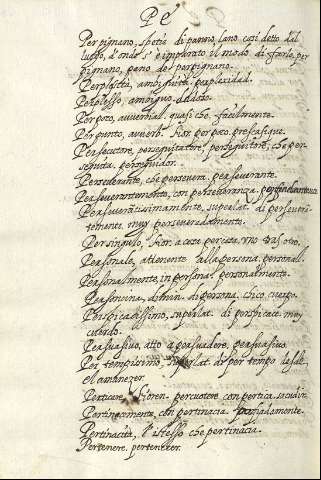 Pe
Perpignano, spetia di panno lano cosi detto dal
luogo, d'onde s'è imparato il modo di farlo, per
pignano, pano de perpignano.
Perplessità, ambiguità, perplexidad.
Perplesso, ambiguo, dudoso.
Per poco, avverbial. quasi che. fácilmente.
Per punto, avverb.
Persecutore, perseguitatore, perseguitore, che per-
seguita. perseguidor.
Perseverante, che persevera. perseverante.
Perseverantemente, con perseveranza.
Perseverantissimamente, superlat. di perseveran-
temente. muy perseveradamente.
Persingulo,
Personale, attenente alla persona. personal.
Personalmente, in persona. personalmente.
Personcina, dimin. di persona. chico cuerpo.
Perspicacissimo, superlat. di perspicace. muy
cuerdo.
Persuasivo, atto a persuadere. persuasivo.
Per tempissimo, superlat. di per tempo
el amanezer.
Perticare, Fioren. percuotere con pertica.
Pertinacemente, con pertinacia.
Pertinacità, l'istesso che pertinacia.
Pertenere. pertenezer.